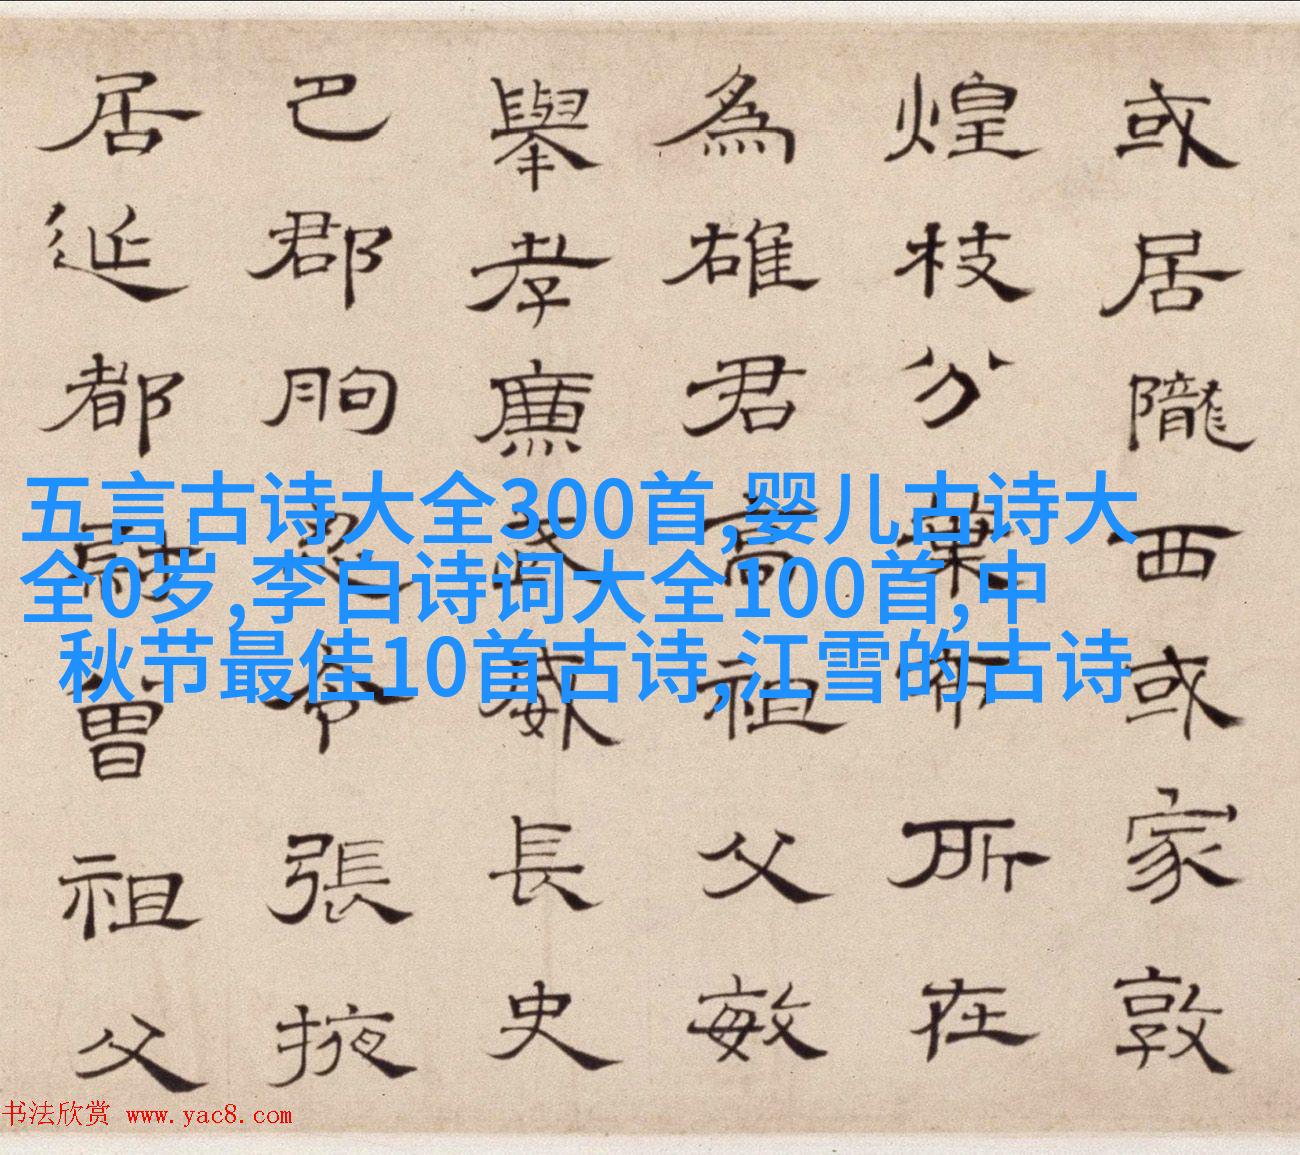 或居隴西或家敦
煌枝分葉布所在
為雄君高祖父敏
舉孝廉武威長史
巴郡朐忍令張掖
居延都尉曾祖父
五言古诗大全300首,婴儿古诗大
全0岁,李白诗词大全100首,中
秋节最佳10首古诗,江雪的古诗
书法欣赏 www.yac8.com